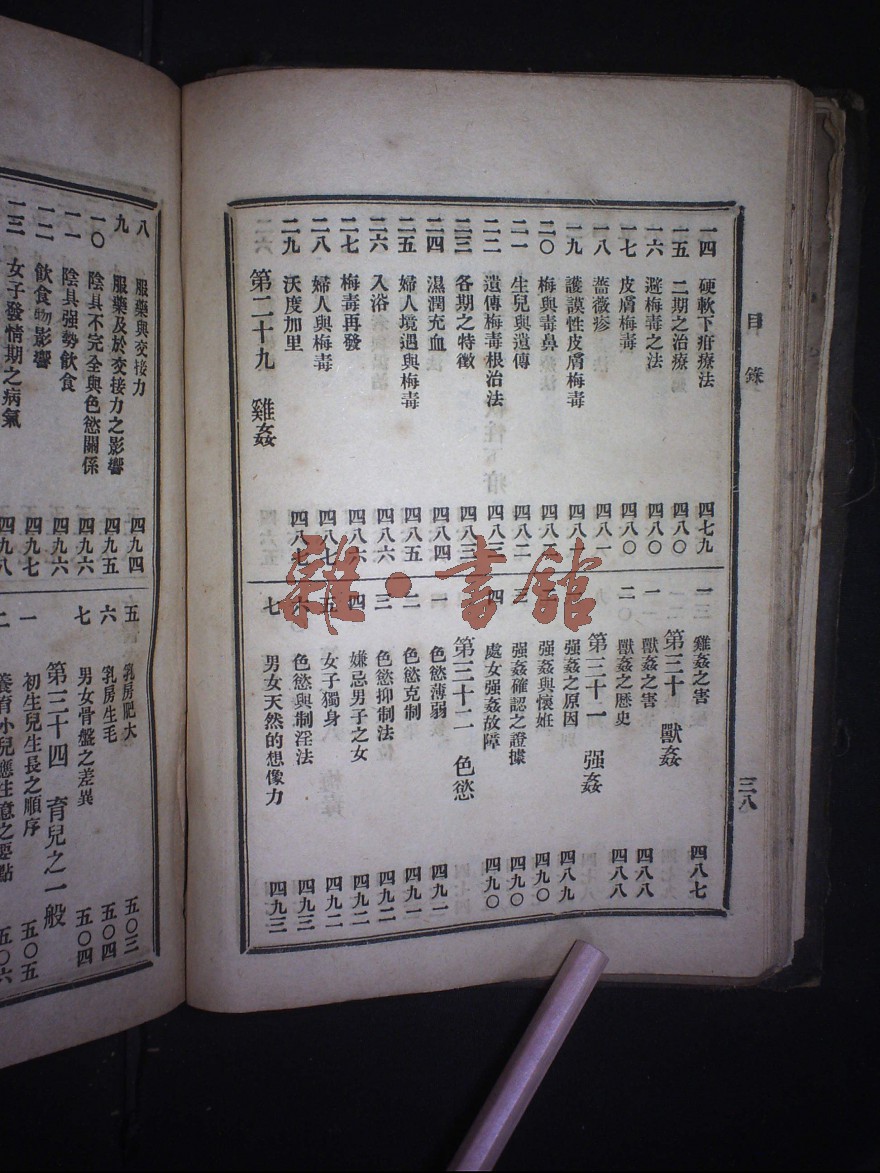 目錄
三八
一四 硬軟下疳療法 四七九
一五 二期之治療 四八〇
一六 避梅毒之法 四八〇
一七 皮膚梅毒 四八〇
一八 薔薇疹 四八一
一九 護謨性皮膚梅毒
二〇 梅與毒鼻
二一 生兒與遺傳 四八二
二二 遺傳梅毒根治法 四八三
二三 各期之特徵 四八三
二四 濕潤充血 四八四
二五 婦人境遇與梅毒 四八五
二六 入浴 四八六
二七 梅毒再發 四八六
二八 婦人與梅毒 四八七
二九 沃度加里 四八七
第二十九 雞姦
雞姦之害 四八七
第三十 獸姦
一 獸姦之害 四八八
二 獸姦之歷史 四八八
第三十一 强姦
强姦之原因 四八九
强姦與懷妊 四九〇
三 强姦確認之證據 四九〇
四 處女强姦故障 四九〇
第三十二 色慾
一 色慾薄弱 四九一
二 色慾克制 四九一
三 色慾抑制法 四九二
四 嫌忌男子之女 四九二
五 女子獨身 四九二
六 色慾與制淫法 四九三
七 男女天然的想像力 四九三
八 服藥與交接力 四九四
九 服藥及於交接力之影響 四九五
一〇 陰具不完全與色慾關係 四九六
一一 陰具强勢飲食 四九六
一二 飲食物影響 四九七
一三 女子發情期之病氣 四九八
五 乳房肥大 五〇三
六 乳房生毛 五〇四
七 男女骨盤之差異 五〇四
第三十四 育兒之一般
一 初生兒生長之順序 五〇五
二 養育小兒應注意之要點 五〇六
雜·書館